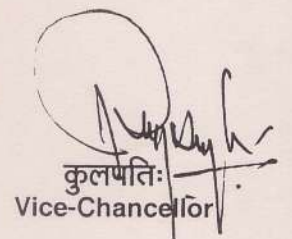 कुलपतिः
Vice-Chancellor